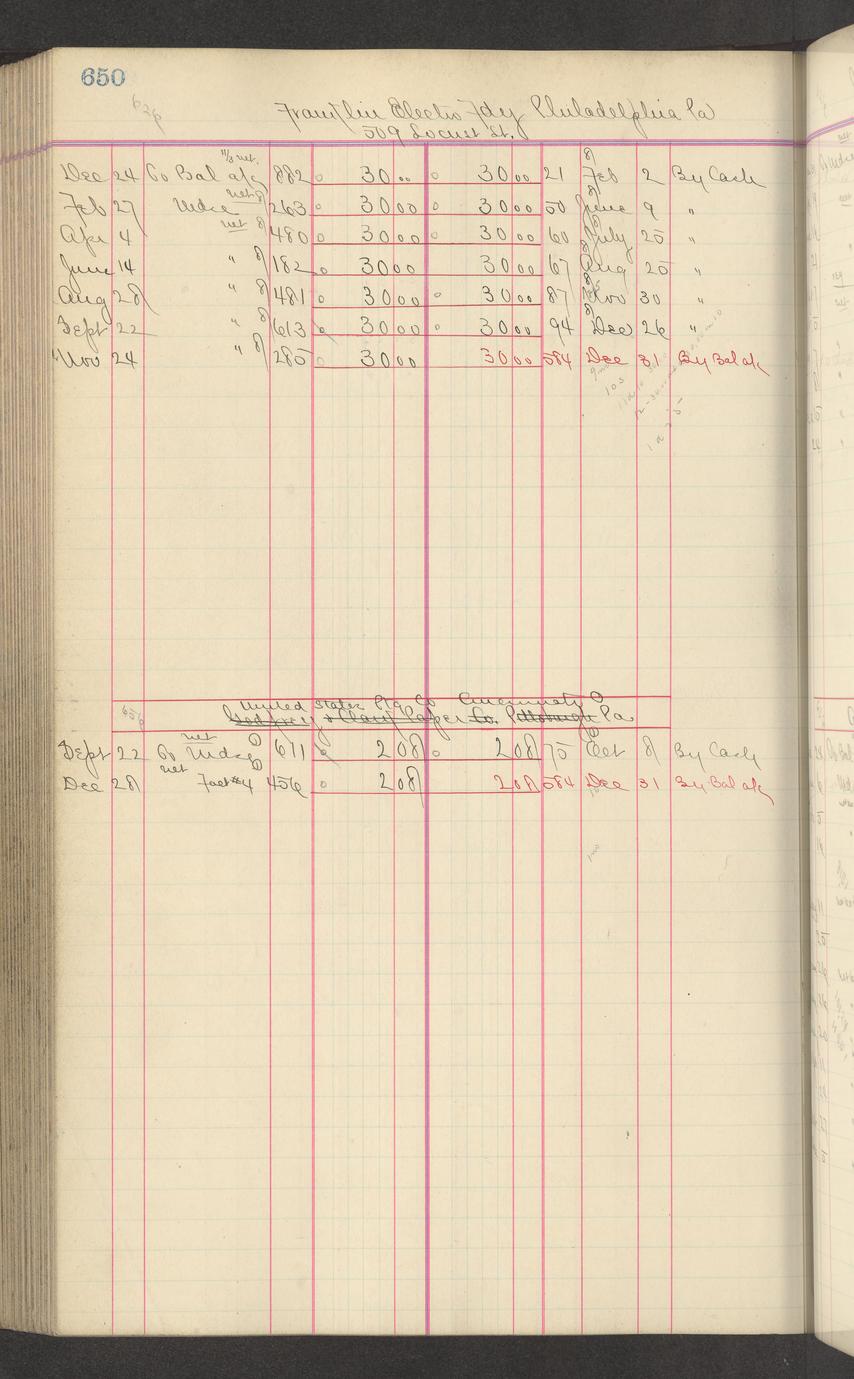 650
626
Franklin Electro Fdy Philadelphia Pa
509 Locust St.
Dec 24 To Bal a/c 882 30 00 30 00 21 Feb 2 By Cash
Feb 27 Mdse net 8 263 30 00 30 00 50 June 9 "
Apr 4 net 8 480 30 00 30 00 60 July 25 "
June 14 " 8 182 30 00 30 00 67 Aug 25 "
Aug 28 " 8 481 30 00 30 00 87 Nov 30 "
Sept 22 " 8 613 30 00 30 00 94 Dec 26 "
Nov 24 " 8 285 30 00 30 00 584 Dec 31 By Bal a/c
United States Ptg Co Cincinnati O
656 Godfrey & Clark Paper Co. Pittsburgh Pa
Sept 22 To Mdse net 1 611 2 08 2 08 75 Oct 8 By Cash
Dec 28 net Fact #4 456 2 08 2 08 584 Dec 31 By Bal a/c